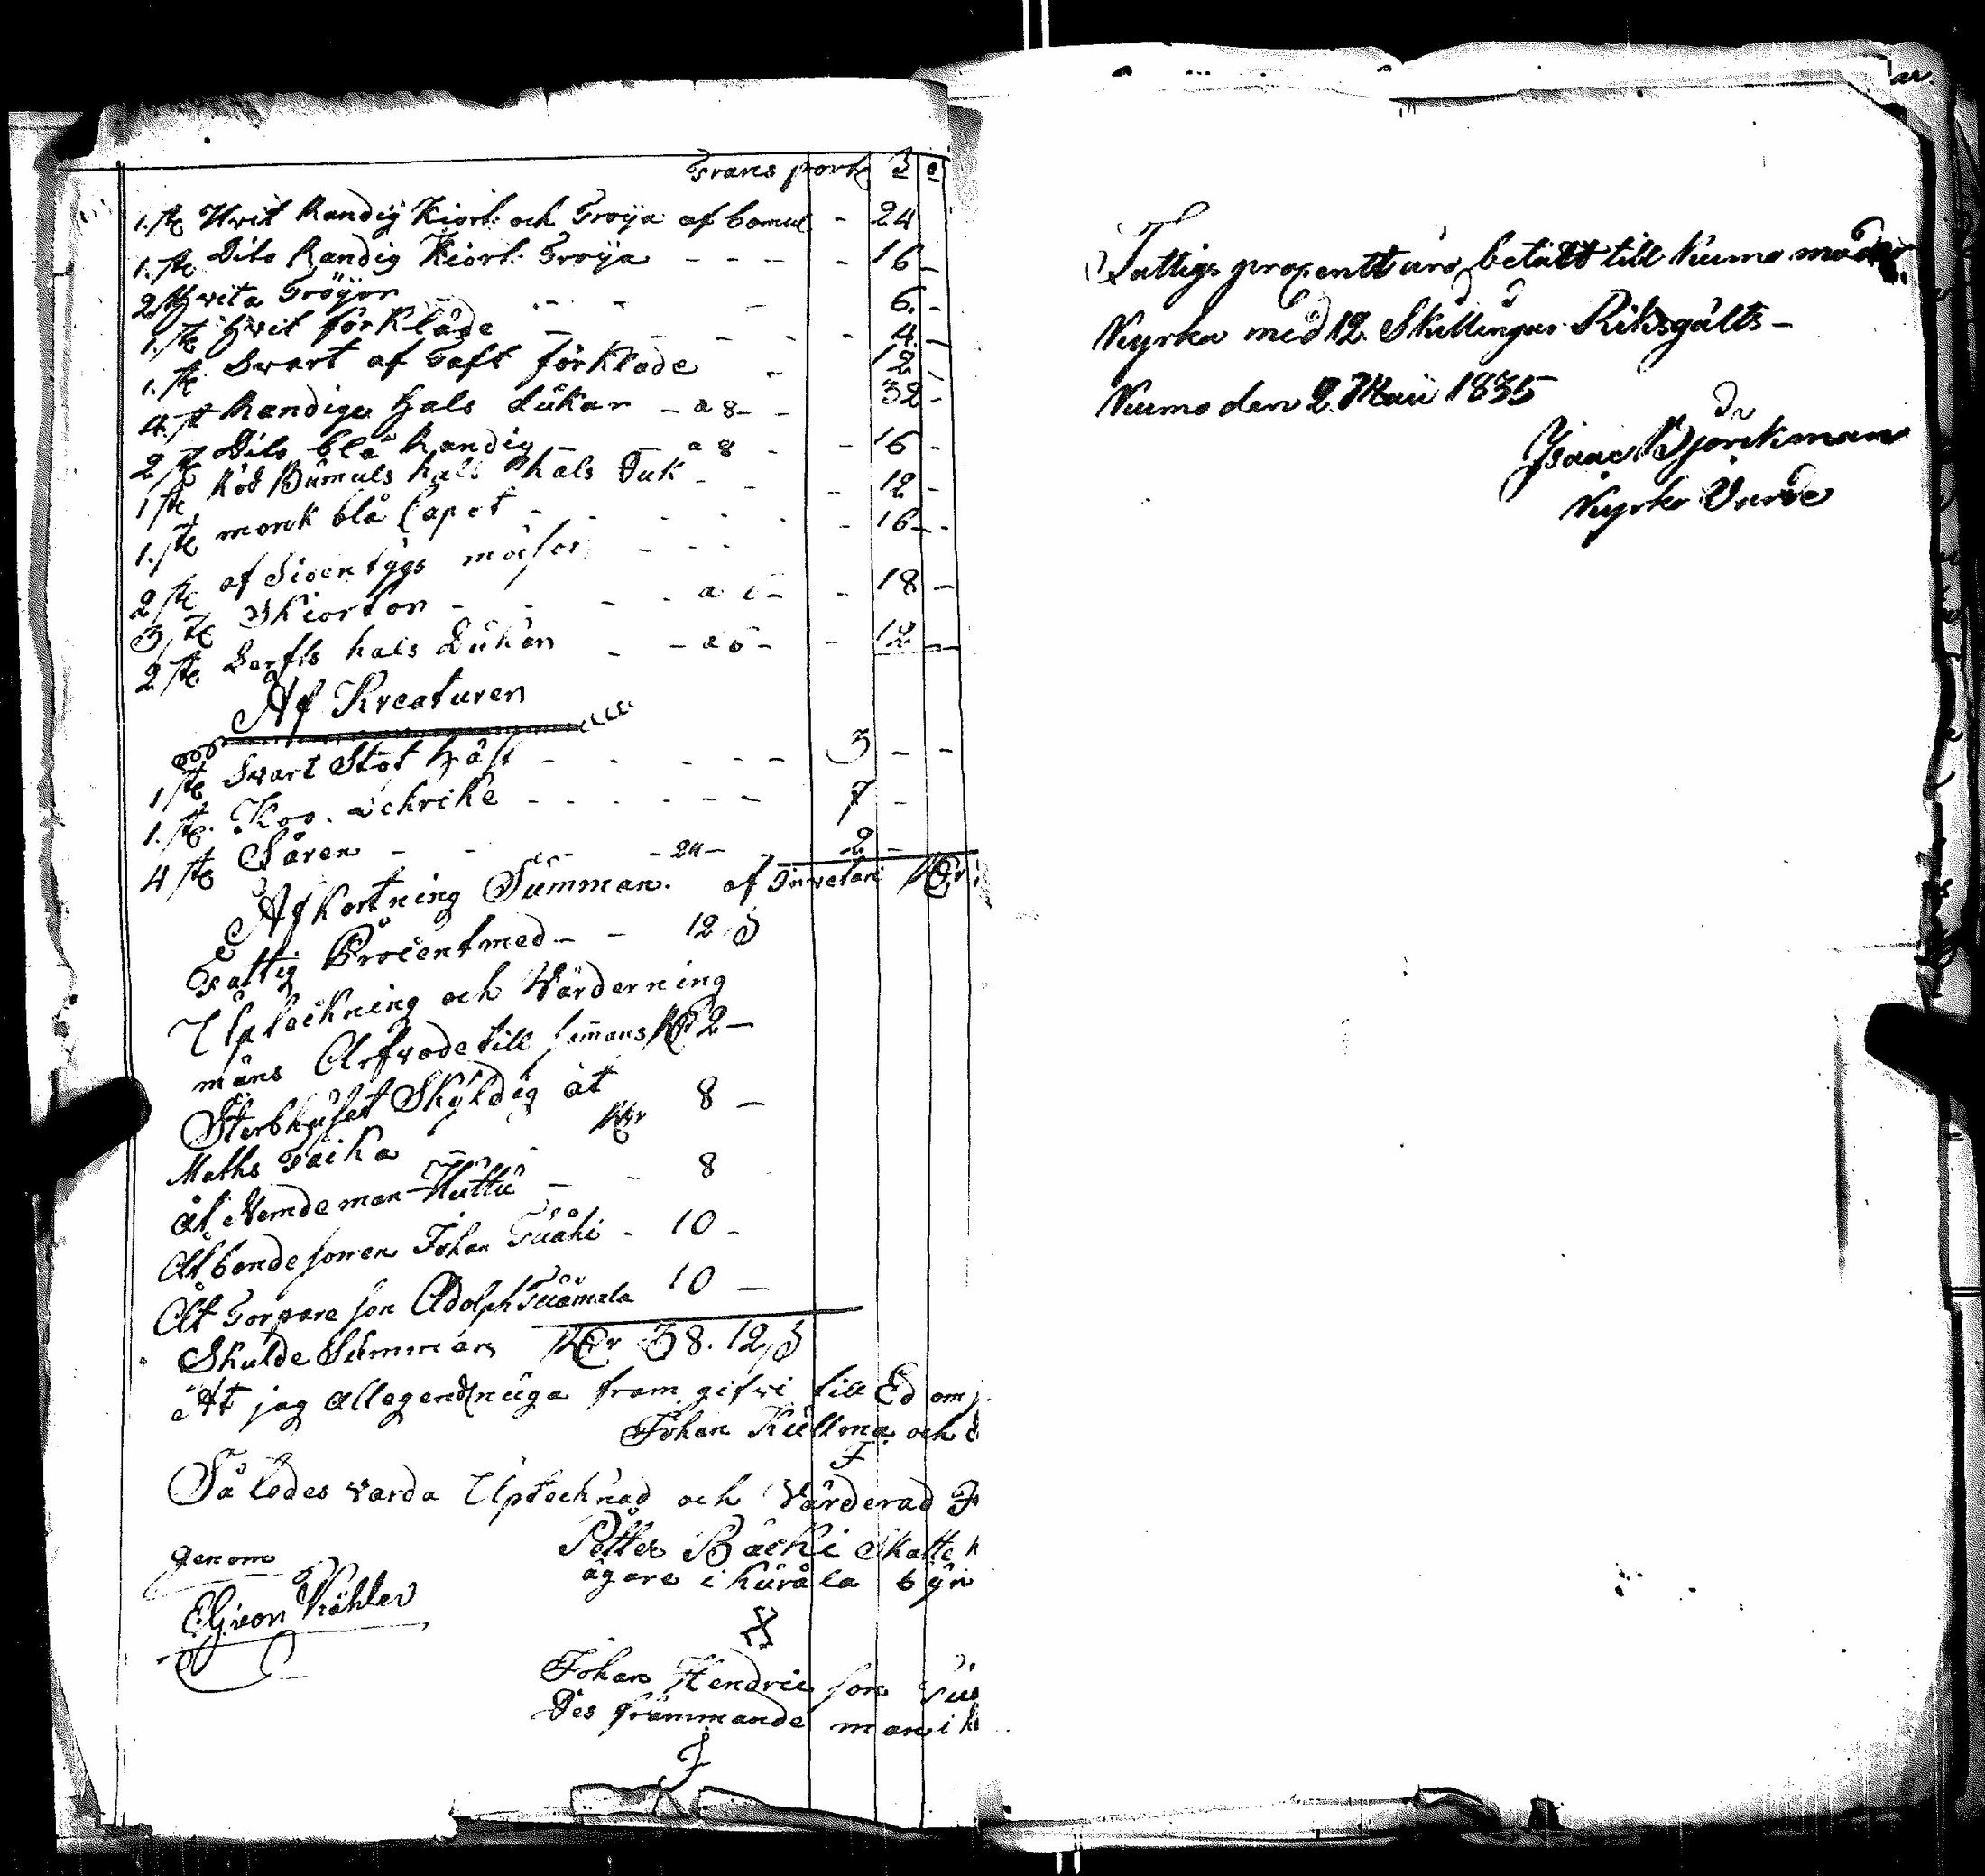 Transport 3 8
1. st Hvit Randig Kiort. och Tröya af bomul - 24
1. st Dito Randig Kiort. Troÿa - - - - 16 -
2 st Hvita Tröÿor - - - - 6. -
1. st Hvit förKläde - - - - 4. -
1. st Swart af Taft förKlade - 12 -
4. st Randiga Hals dukar - a 8 - - 32 -
2 st Dito blå Randig - - a 8 - - 16 -
1 st Röd Bumuls hals hals Duk - - - 12 -
1. st mörk blå Capot - - - - - 16 - -
2 st af Siden tÿgs mössor - - -
3 st Skiorton - - - - a 6 - - 18 -
2 st Lerfts hals Dukan - - a 6 - - 12 -
Af Kreaturen
1 st Svart Stot Häst - - - - - 3 - -
1. st Koo. - - - - - - 7 -
4 st Fåren - - - - 24 - - 2 -
AfKortning Summan. af
Fattig Procent med - - 12 S
Uptechning och Värderning
mäns Arfvode till samans Rr 2 -
Sterbhuset Skÿldig åt
Maths - - Rr 8 -
åt Nemdeman Huttu - - 8
Åt bondesonen Johan - 10 -
Åt Torpare son Adolph 10 -
Skulde Summan Rr 38. 12 S
At jag allegendnuga fram gifvi till Ed om
Johan Kullma och
Således varda Uptechnad och Värderad
genom Petter Bäcki Skatte
ägare i Kuråla bÿn
E. G. von Köhler
Johan Hendric son
Des främmande man i
Fattigs prosentt äro betalt till Kumo moder
Kyrka med 12. Skillingar Riksgälts -
Kumo den 2. Maii 1835
Isaac Björkman
Kyrko Värde